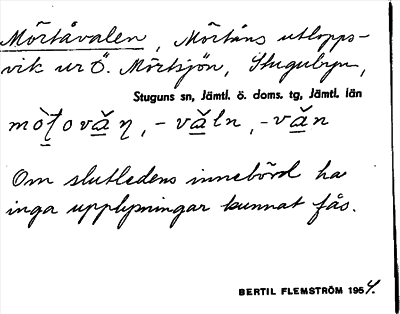 Mörtåvalen, Mörtåns utlopps-
vik ur Ö. Mörtsjön, Stugubyn,
Stuguns sn, Jämtl. ö. doms. tg, Jämtl. län
Om slutledens innebörd ha
inga upplysningar kunnat fås.
BERTIL FLEMSTRÖM 1954.